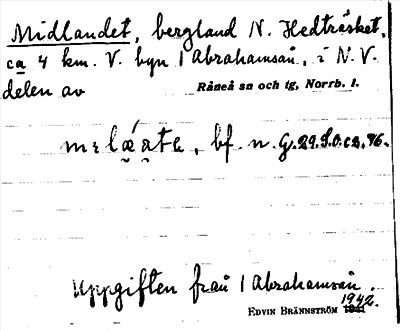 Midlandet, bergland N. Hedträsket,
ca 4 km. V. byn i Abrahamsån, i N.V.
delen av Råneå sn och tg, Norrb. l.
bf. n. G.29.S.O.
Uppgiften från i Abrahamsån.
1942.
EDVIN BRÄNNSTRÖM 1941